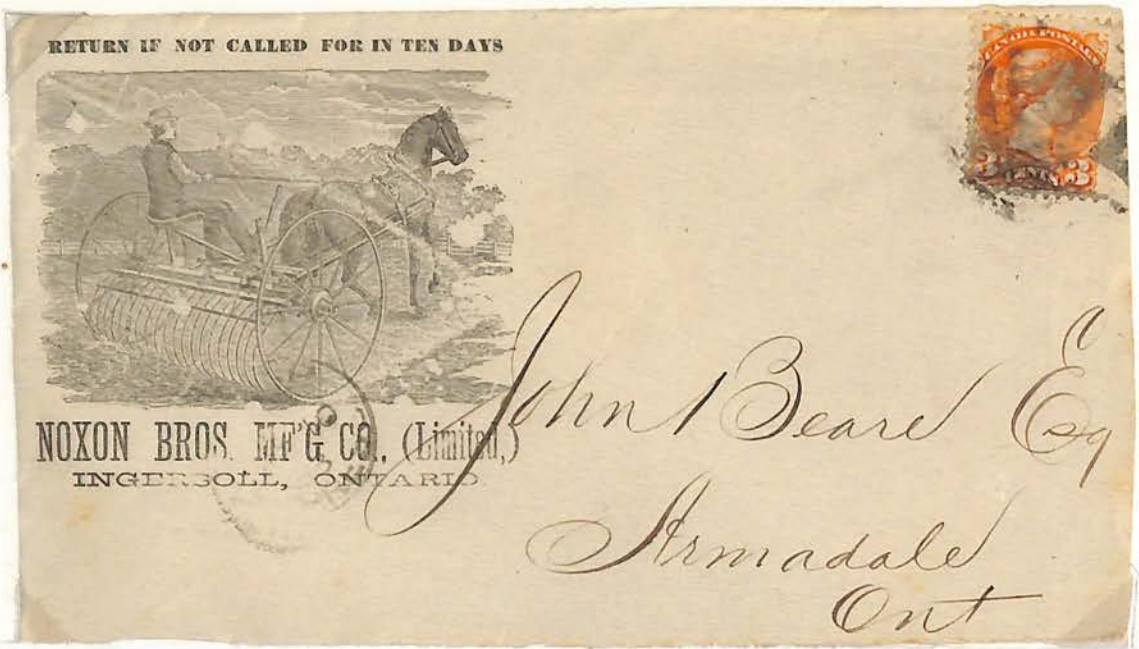 RETURN IF NOT CALLED FOR IN TEN DAYS
CANADA POSTAGE
3 CENTS 3
NOXON BROS. MF'G. CO. (Limited,)
INGERSOLL, ONTARIO
John Beare Esq
Armadale
Ont